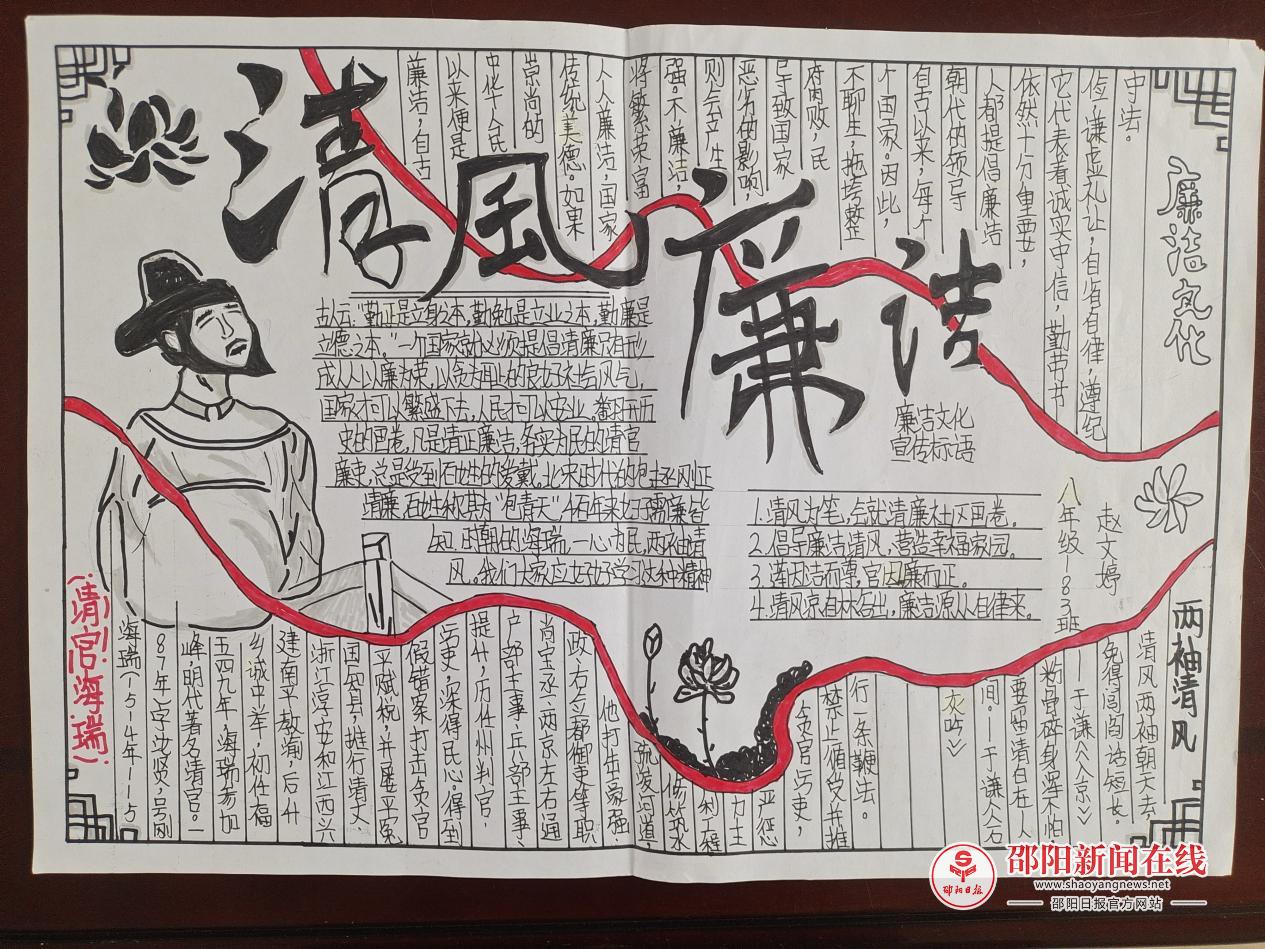 清风廉洁
廉洁文化
廉洁，自古
以来便是
中华人民
崇尚的
传统美德。如果
人人廉洁，国家
将繁荣富
强。不廉洁，
则会产生
恶劣的影响，
导致国家
腐败，民
不聊生，拖垮整
个国家。因此，
自古以来，每个
朝代的领导
人都提倡廉洁
依然十分重要，
它代表着诚实守信，勤劳节
俭，谦虚礼让，自省自律，遵纪
守法。
古人云：“勤正是立身之本，勤勉是立业之本，勤廉是
立德之本。”一个国家就必须提倡清廉只有形
成人人以廉为荣，以贪为耻的良好社会风气，
国家才可以繁盛下去，人民才可以安业，翻开历
史的画卷，凡是清正廉洁，务实为民的清官
廉吏，总是受到百姓的爱戴。北宋时代的包拯丞风正
清廉，百姓称其为“包青天”
知，明朝的海瑞，一心为民，两袖清
风。我们大家应好好学习这种精神
廉洁文化
宣传标语
1.清风为笔，绘就清廉社区画卷。
2.倡导廉洁清风，营造幸福家园。
3.莲因洁而尊，官因廉而正。
4.清风京自林谷出，廉洁源从自律来。
赵文婷
八年级183班
(清官海瑞)
海瑞（1514年—15
87年）字汝贤，号刚
峰，明代著名清官。一
五四九年，海瑞参加
乡试中举，初任福
建南平教谕，后升
浙江淳安和江西兴
国知县，推行清丈、
平赋税，并屡平冤
假错案，打击贪官
污吏，深得民心。得到
提升，历任州判官，
户部主事、兵部主事、
尚宝丞、两京左右通
政、右佥都御吏等职
他打击豪强，
疏浚河道，
修筑水
利工程
力主
严惩
贪官污吏，
禁止徇受，并推
行一条鞭法。
两袖清风
清风两袖朝天去，
免得闾阎话短长。
——于谦《入京》
粉骨碎身浑不怕
要留清白在人
间。——于谦《石
灰吟》
邵阳新闻在线
www.shaoyangnews.net
邵阳日报官方网站
邵阳日报